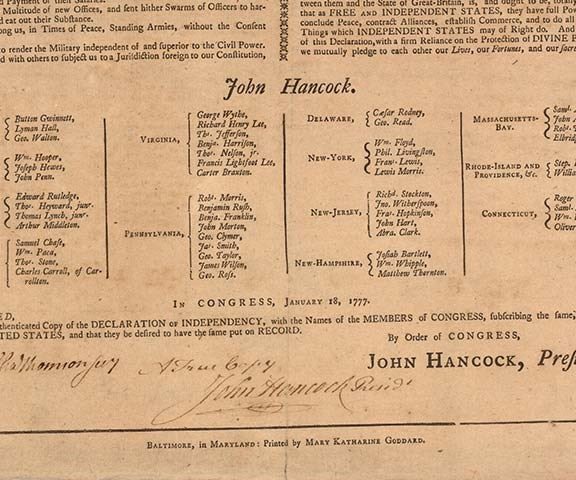 Payment of their Salaries.
Multitude of new Offices, and sent hither Swarms of Officers to har-
d eat out their Substance.
ong us, in Times of Peace, Standing Armies, without the Consent
to render the Military independent of and superior to the Civil Power.
d with others to subject us to a Jurisdiction foreign to our Constitution,
tween them and the State of Great-Britain, is, and ought to be, totally
that as FREE AND INDEPENDENT STATES, they have full Pow
conclude Peace, contract Alliances, establish Commerce, and to do all
Things which INDEPENDENT STATES may of Right do. And
of this Declaration, with a firm Reliance on the Protection of DIVINE P
we mutually pledge to each other our Lives, our Fortunes, and our Sacre
John Hancock.
Button Gwinnett,
Lyman Hall,
Geo. Walton.
Wm. Hooper,
Joseph Hewes,
John Penn.
Edward Rutledge,
Thos. Heyward, junr.
Thomas Lynch, junr.
Arthur Middleton.
Samuel Chase,
Wm. Paca,
Thos. Stone,
Charles Carroll, of Car-
rollton.
VIRGINIA,
George Wythe,
Richard Henry Lee,
Ths. Jefferson,
Benja. Harrison,
Thos. Nelson, jr.
Francis Lightfoot Lee,
Carter Braxton.
PENNSYLVANIA,
Robt. Morris,
Benjamin Rush,
Benja. Franklin,
John Morton,
Geo. Clymer,
Jas. Smith,
Geo. Taylor,
James Wilson,
Geo. Ross.
DELAWARE,
Cæsar Rodney,
Geo. Read.
NEW-YORK,
Wm. Floyd,
Phil. Livingston,
Frans. Lewis,
Lewis Morris.
NEW-JERSEY,
Richd. Stockton,
Jno. Witherspoon,
Fras. Hopkinson,
John Hart,
Abra. Clark.
NEW-HAMPSHIRE,
Josiah Bartlett,
Wm. Whipple,
Matthew Thornton.
MASSACHUSETTS-
BAY.
Saml.
John
Robt.
Elbridg
RHODE-ISLAND AND
PROVIDENCE, &c.
Step.
William
CONNECTICUT,
Roger
Saml.
Wm.
Oliver
IN CONGRESS, JANUARY 18, 1777.
ED,
thenticated Copy of the DECLARATION OF INDEPENDENCY, with the Names of the MEMBERS OF CONGRESS, subscribing the same,
ITED STATES, and that they be desired to have the same put on RECORD.
By Order of CONGRESS,
JOHN HANCOCK, Presi
A True Copy
John Hancock Presidt
BALTIMORE, in MARYLAND: Printed by MARY KATHARINE GODDARD.